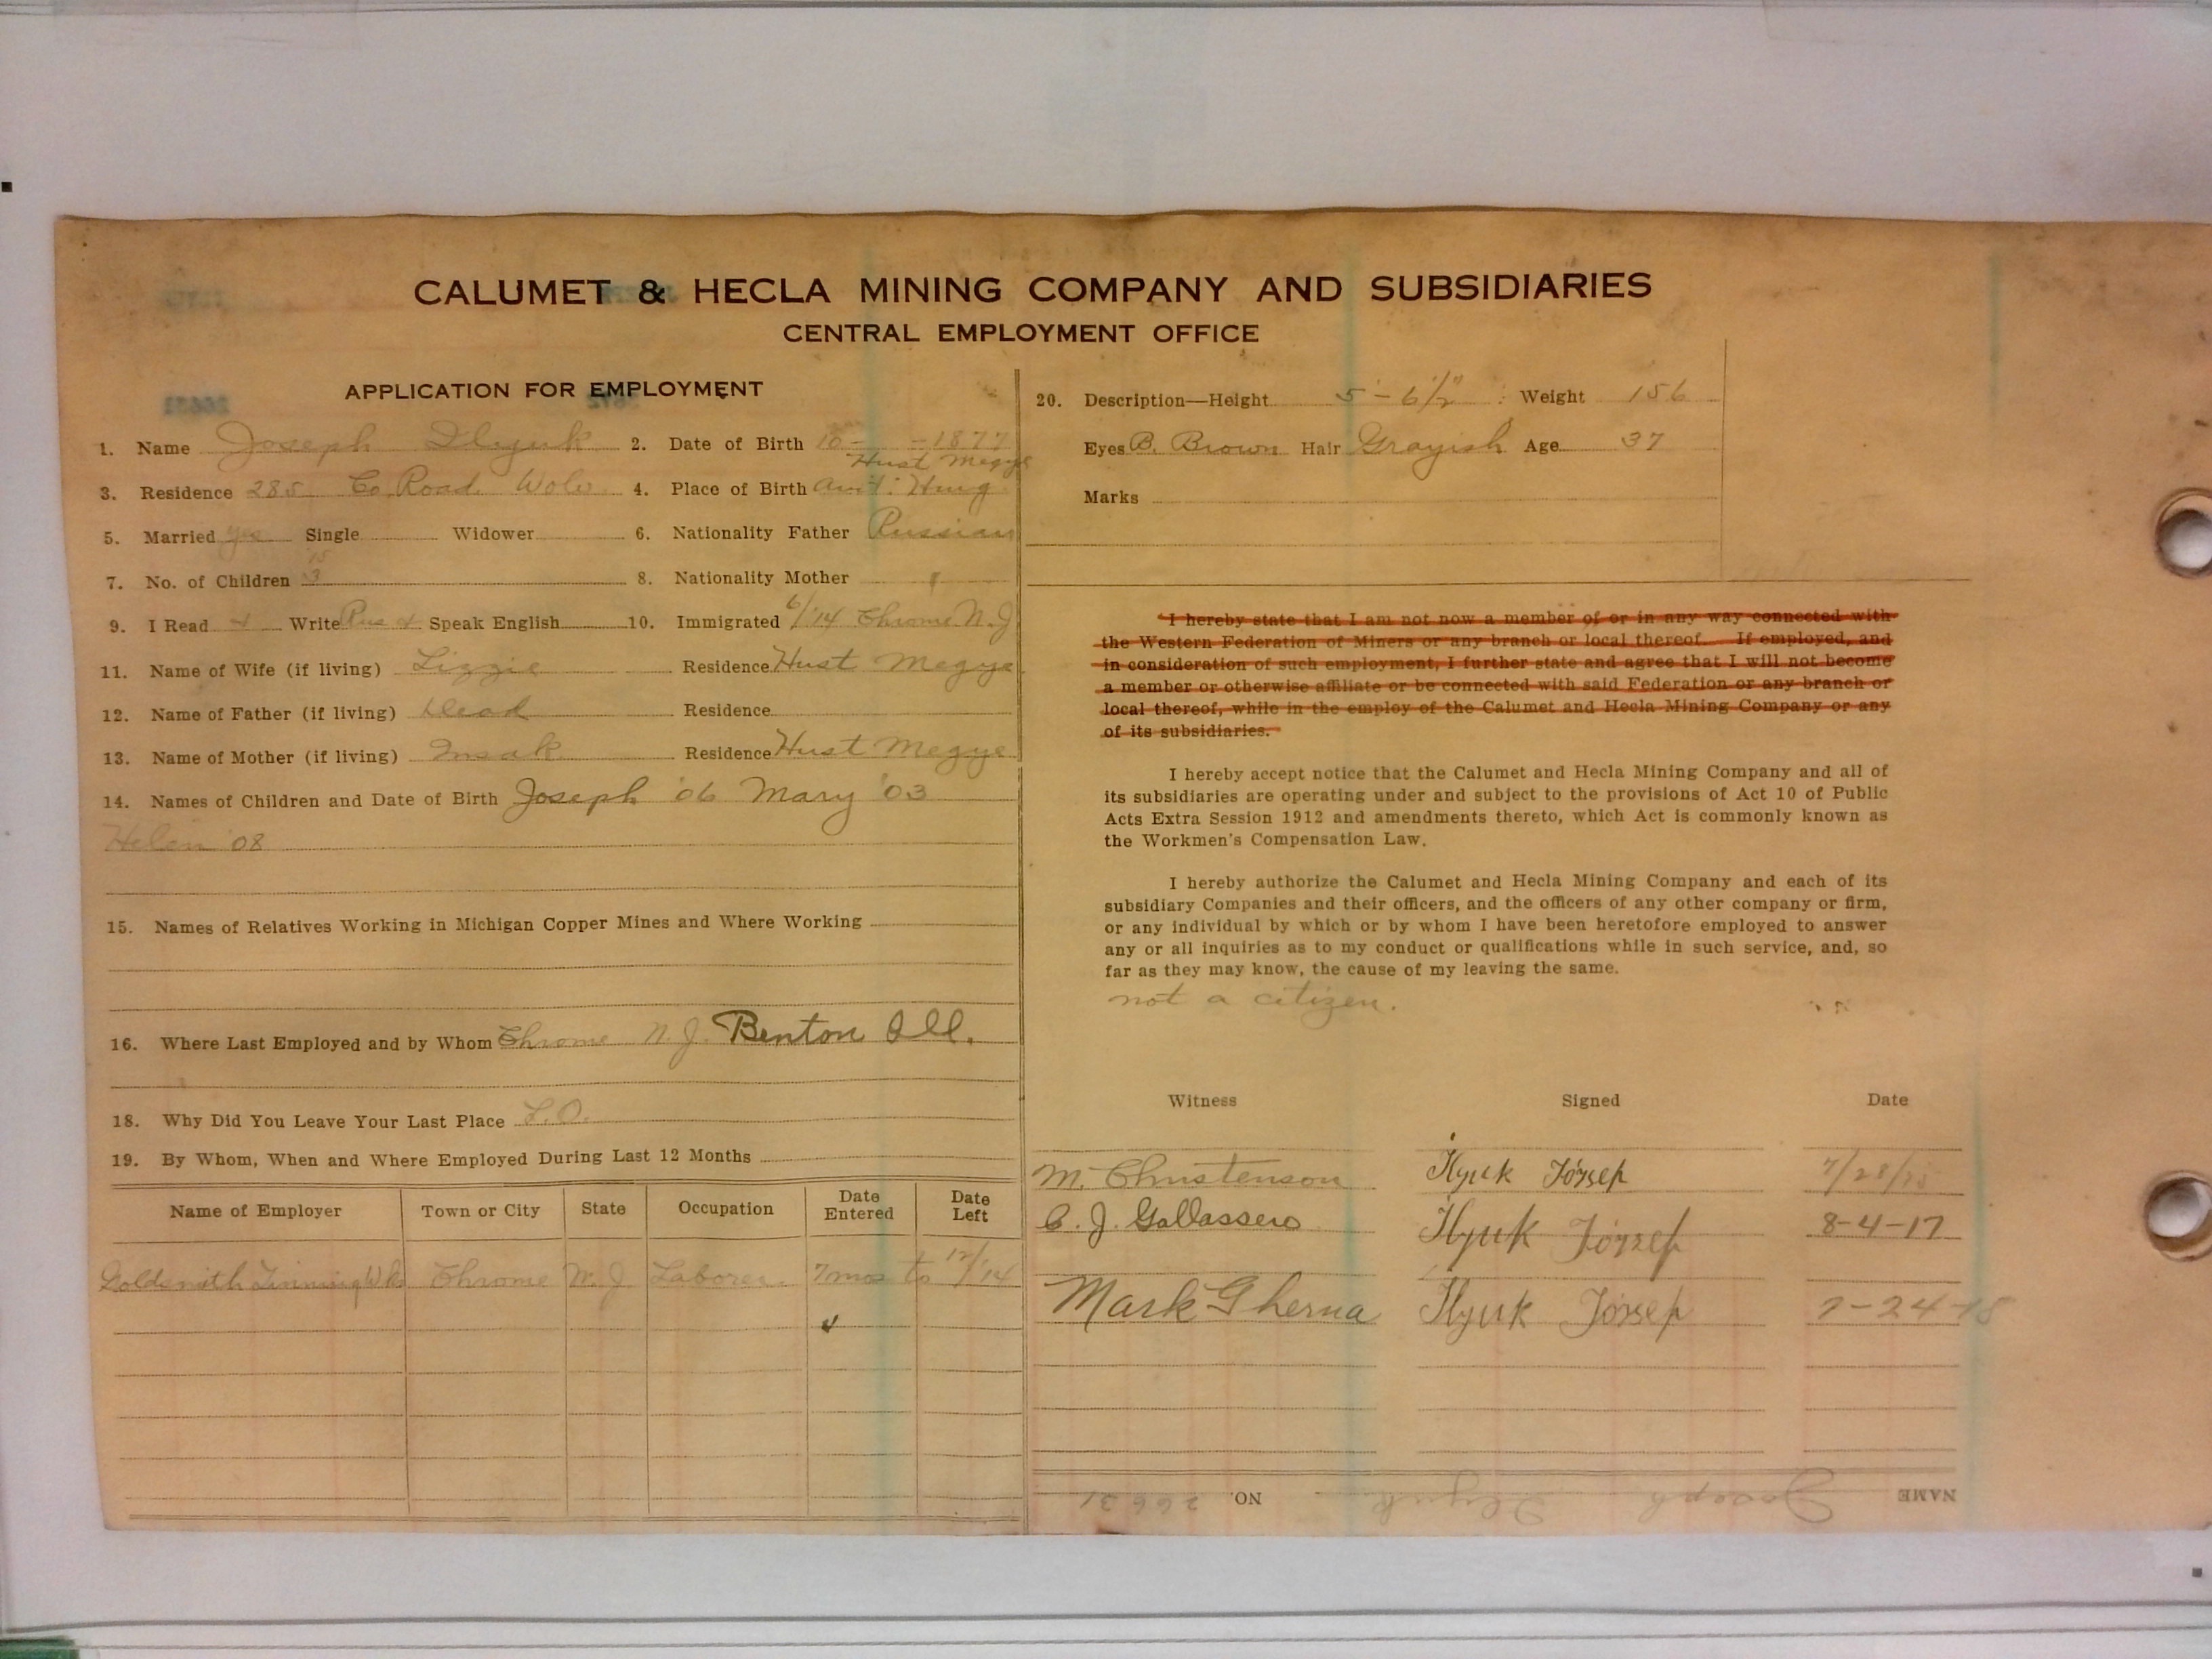 CALUMET & HECLA MINING COMPANY AND SUBSIDIARIES
CENTRAL EMPLOYMENT OFFICE
APPLICATION FOR EMPLOYMENT
1. Name Joseph Ilyuk 2. Date of Birth 10- -1877
Hust Megye
3. Residence 285 Co. Road Wolv. 4. Place of Birth Hung
5. Married yes Single Widower 6. Nationality Father Russian
7. No. of Children 3 8. Nationality Mother "
9. I Read + Write Rus + Speak English 10. Immigrated 6/'14 Chrome N.J
11. Name of Wife (if living) Lizzie Residence Hust Megye
12. Name of Father (if living) Dead Residence
13. Name of Mother (if living) Residence Hust Megye
14. Names of Children and Date of Birth Joseph '06 Mary '03
Helen '08
15. Names of Relatives Working in Michigan Copper Mines and Where Working
16. Where Last Employed and by Whom Chrome N.J. Benton Ill.
18. Why Did You Leave Your Last Place L.O.
19. By Whom, When and Where Employed During Last 12 Months
Name of Employer Town or City State Occupation Date Entered Date Left
Goldsmith Tinning Wks Chrome N.J Laborer 7 mos to 12/'14
20. Description—Height 5'-6 1/2" Weight 156
Eyes B. Brown Hair Grayish Age 37
Marks
I hereby state that I am not now a member of or in any way connected with
the Western Federation of Miners or any branch or local thereof. If employed, and
in consideration of such employment, I further state and agree that I will not become
a member or otherwise affiliate or be connected with said Federation or any branch or
local thereof, while in the employ of the Calumet and Hecla Mining Company or any
of its subsidiaries.
I hereby accept notice that the Calumet and Hecla Mining Company and all of
its subsidiaries are operating under and subject to the provisions of Act 10 of Public
Acts Extra Session 1912 and amendments thereto, which Act is commonly known as
the Workmen's Compensation Law.
I hereby authorize the Calumet and Hecla Mining Company and each of its
subsidiary Companies and their officers, and the officers of any other company or firm,
or any individual by which or by whom I have been heretofore employed to answer
any or all inquiries as to my conduct or qualifications while in such service, and, so
far as they may know, the cause of my leaving the same.
not a citizen.
Witness Signed Date
M. Christenson Ilyuk József 7/28/15
C. J. Gallassero Ilyuk József 8-4-17
Mark Gherna Ilyuk József 7-24-18
NAME Joseph Ilyuk NO. 26631